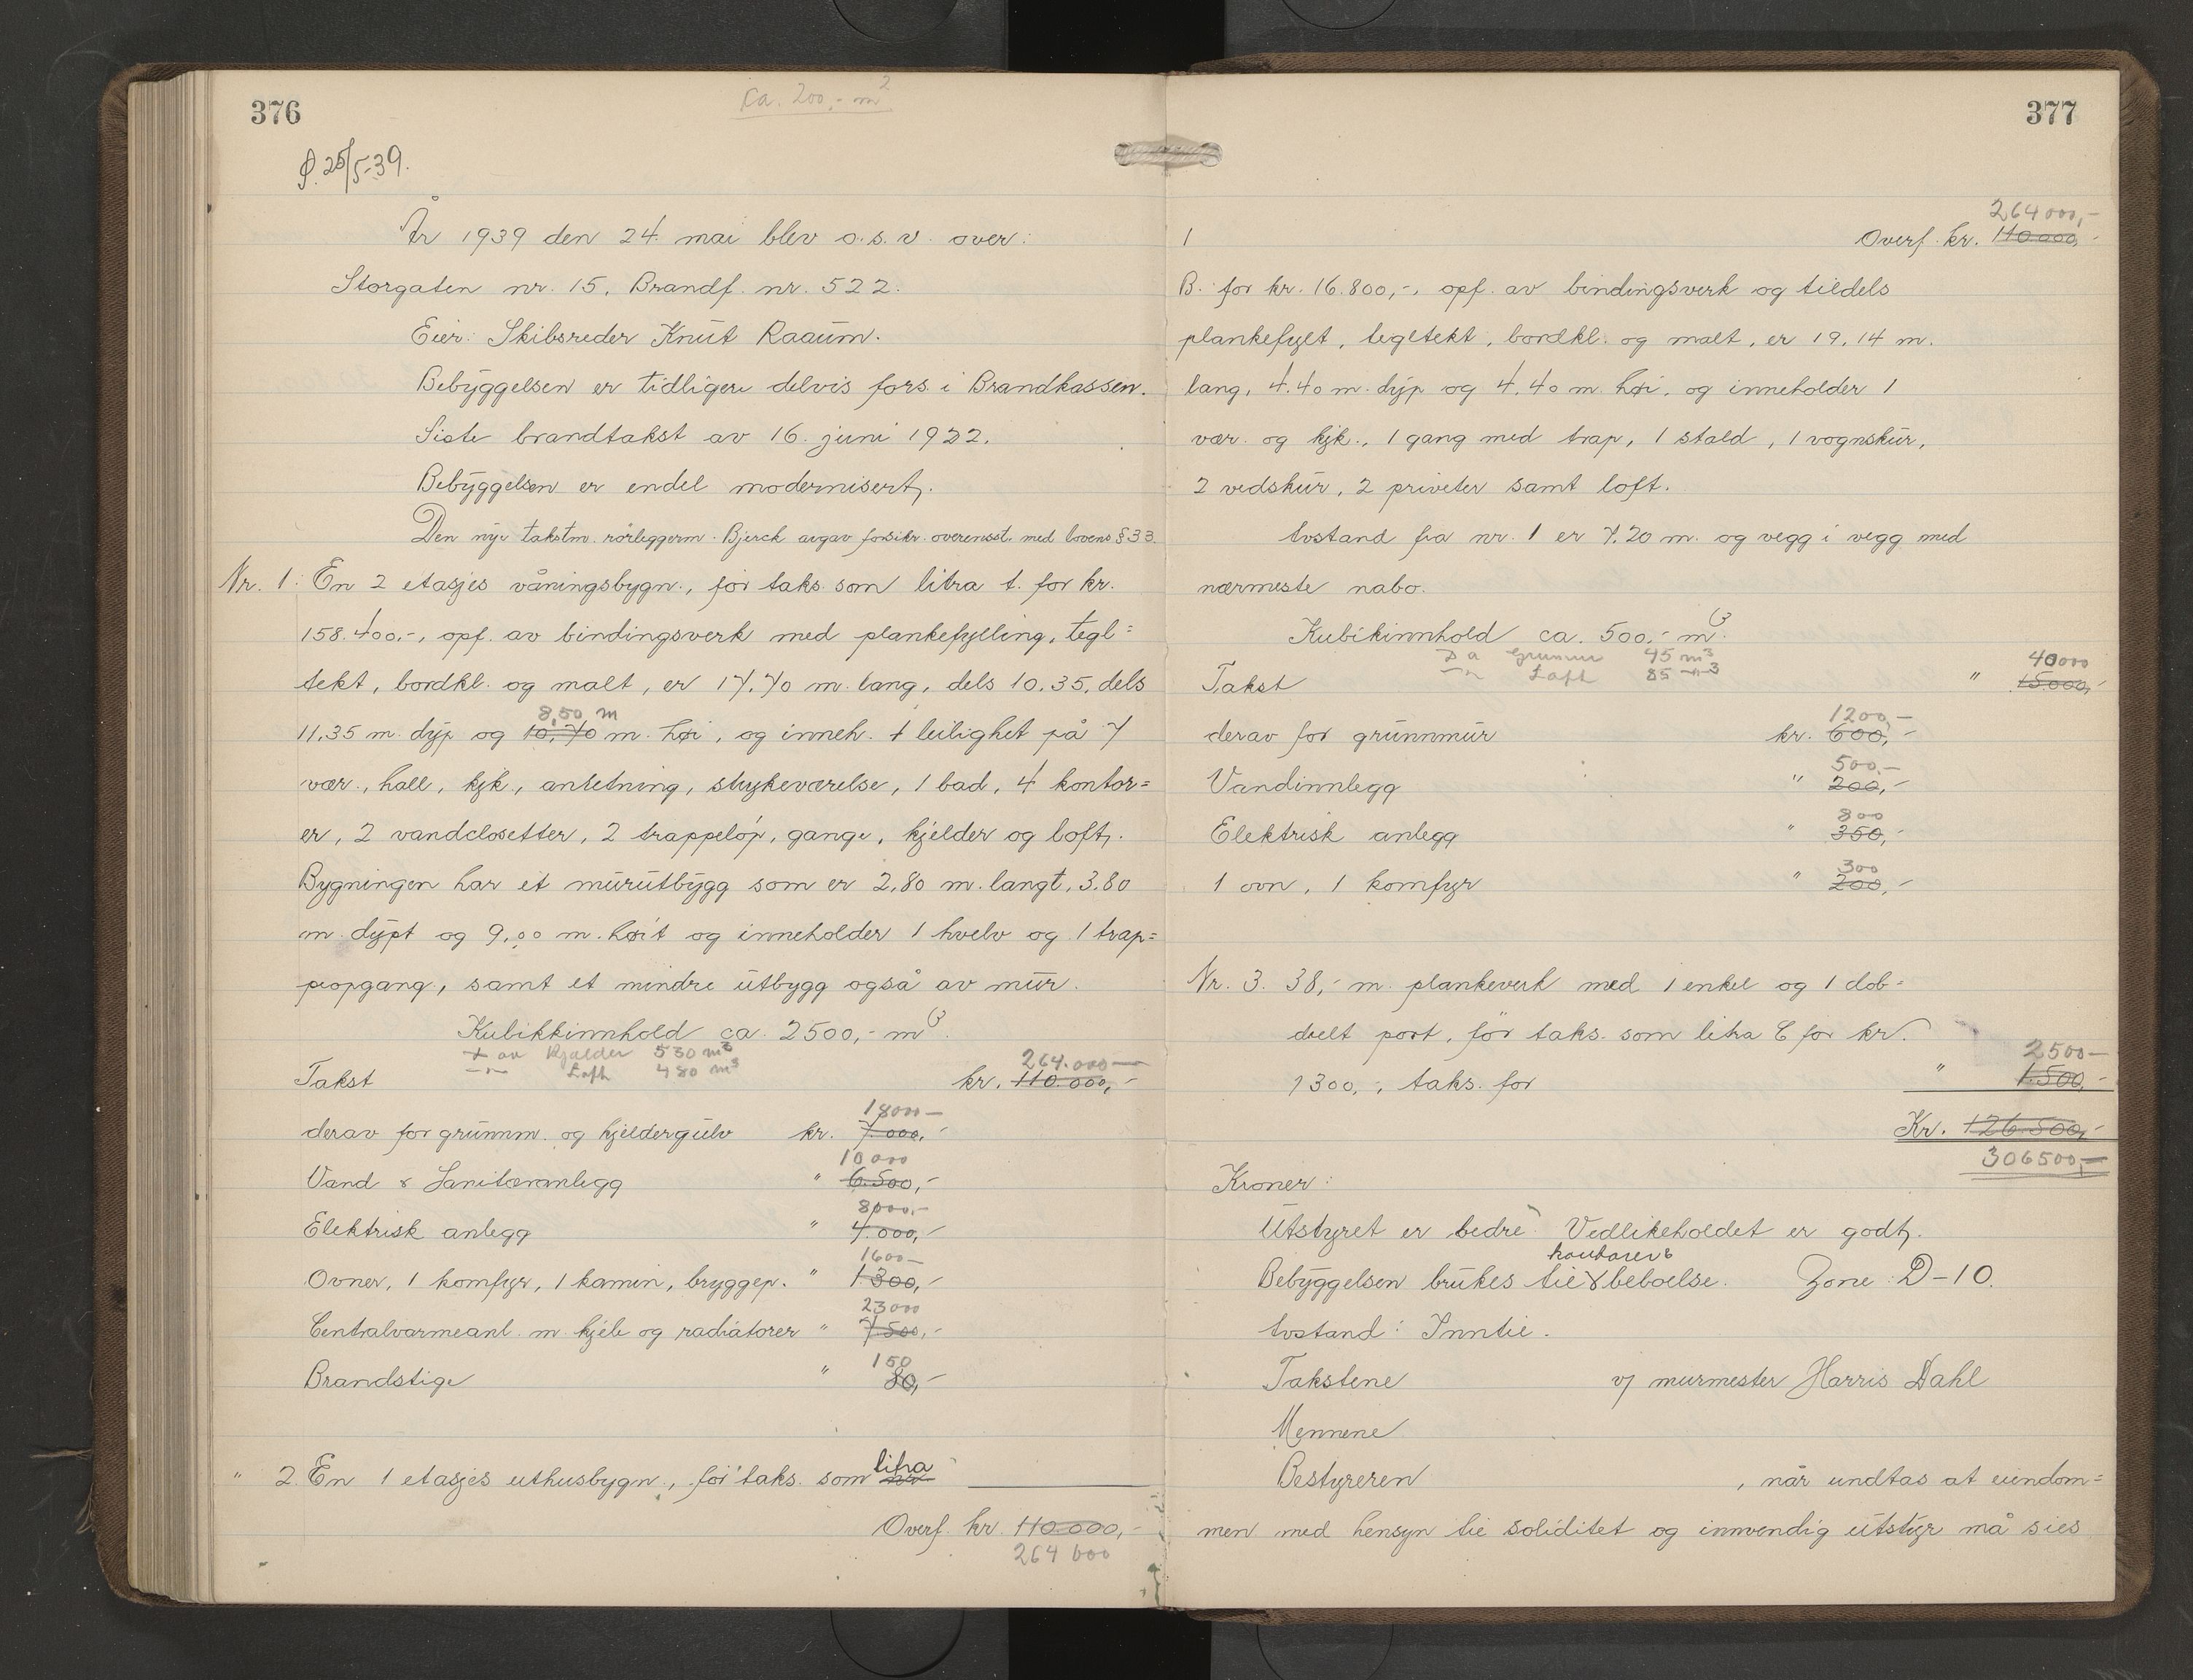 376
ca. 200,- m²
25/5-39.
År 1939 den 24. mai blev o.s.v. over:
Storgaten nr. 15. Brandf. nr. 522.
Eier: Skibsreder Knut Raaum.
Bebyggelsen er tidligere delvis fors. i Brandkassen.
Siste brandtakst av 16. juni 1922.
Bebyggelsen er endel modernisert.
Den nye takstm. rörleggerm. Bjerck avgav forsikr. overensst. med lovens § 33.
Nr. 1: En 2 etasjes våningsbygn., før taks. som litra A. for kr.
158.400.-, opf. av bindingsverk med plankefylling, tegl=
tekt, bordkl. og malt, er 17.70 m. lang, dels 10.35, dels
8,50 m
11.35 m. dyp og 10,70 m. høi, og inneh. 1 leilighet på 7
vær., hall, kjk., anretning, strykeværelse, 1 bad, 4 kontor=
er, 2 vandclosetter, 2 trappeløp, gange, kjelder og loft.
Bygningen har et murutbygg som er 2,80 m. langt, 3.80
m. dypt og 9,00 m. høit og inneholder 1 hvelv og 1 trap=
peopgang, samt et mindre utbygg også av mur.
Kubikkinnhold ca. 2500,- m3.
+ av Kjælder 530 m³
Loft 480 m³
264.000—
Takst kr. 110.000,-
18000—
derav for grunnm. og kjeldergulv kr. 7.000,-
10000
Vand & Sanitæranlegg " 6.500,-
8000,-
Elektrisk anlegg " 4.000,-
1600—
Ovner, 1 komfyr, 1 kamin, bryggep. " 1300,-
23000
Centralvarmeanl. m. kjele og radiatorer " 7.500,-
150
Brandstige " 80,-
litra
" 2. En 1 etasjes uthusbygn., før taks. som
Overf. kr. 110.000,-
264000
377
264000,-
1 Overf. kr. 110.000,-
B. for kr. 16.800,-, opf. av bindingsverk og tildels
plankefylt, tegltekt, bordkl. og malt, er 19,14 m.
lang, 4.40 m. dyp og 4.40 m. høi, og inneholder 1
vær. og kjk., 1 gang med trap, 1 stald, 1 vognskur,
2 vedskur, 2 priveter samt loft.
Avstand fra nr. 1 er 7.20 m. og vegg i vegg med
nærmeste nabo.
Kubikinnhold ca. 500,- m3.
Grunnur 45 m³
Loft 85 —³
40000
Takst " 15.000,-
1200,—
derav for grunnmur kr. 600,-
500,—
Vandinnlegg " 200,-
800
Elektrisk anlegg " 350,-
300
1 ovn, 1 komfyr " 200,-
Nr. 3. 38,- m. plankeverk med 1 enkel og 1 dob=
belt port, før taks. som litra C for kr.
2500—
1300,-, taks. for " 1.500,-
Kr. 126.500,-
306500,—
Kroner:
Utstyret er bedre. Vedlikeholdet er godt.
kontorer &
Bebyggelsen brukes til beboelse. Zone: D-10.
Avstand: Inntil.
Takstene v/ murmester Harris Dahl
Mennene
Bestyreren , når undtas at eiendom=
men med hensyn til soliditet og innvendig utstyr må sies